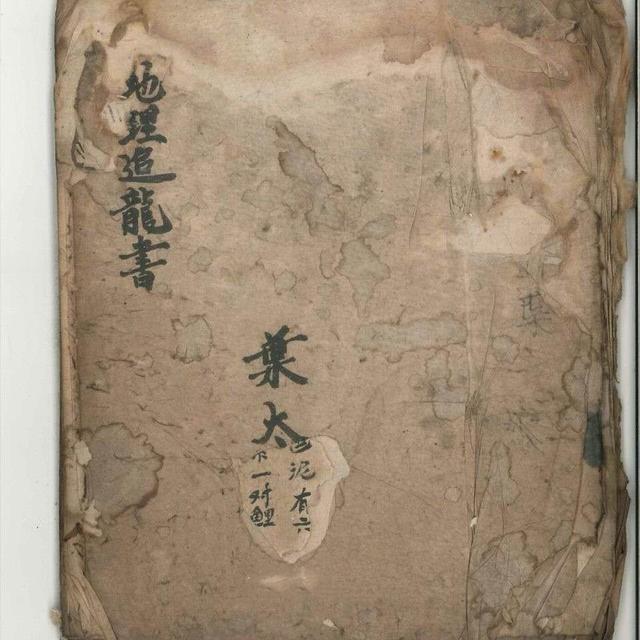 葉
葉太
泥有六
下一对鯉
地理追龍書